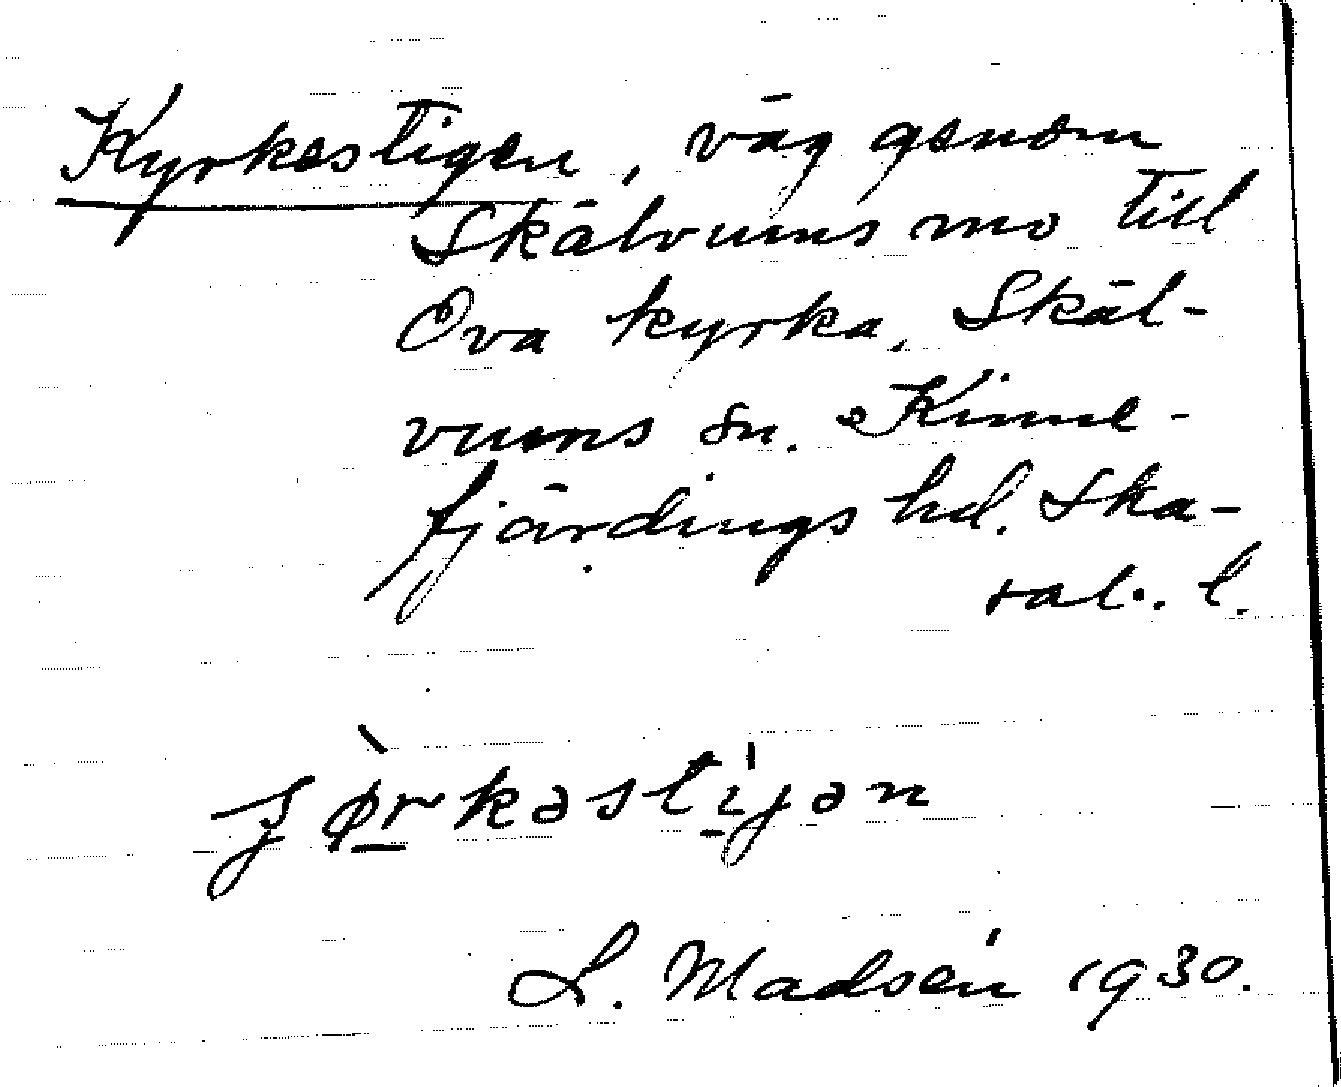 Kyrkestigen, väg genom
Skälvums mo till
Ova kyrka, Skäl-
vums sn. Kinne-
fjärdings hd. Ska-
rab. l.
L. Madsén 1930.